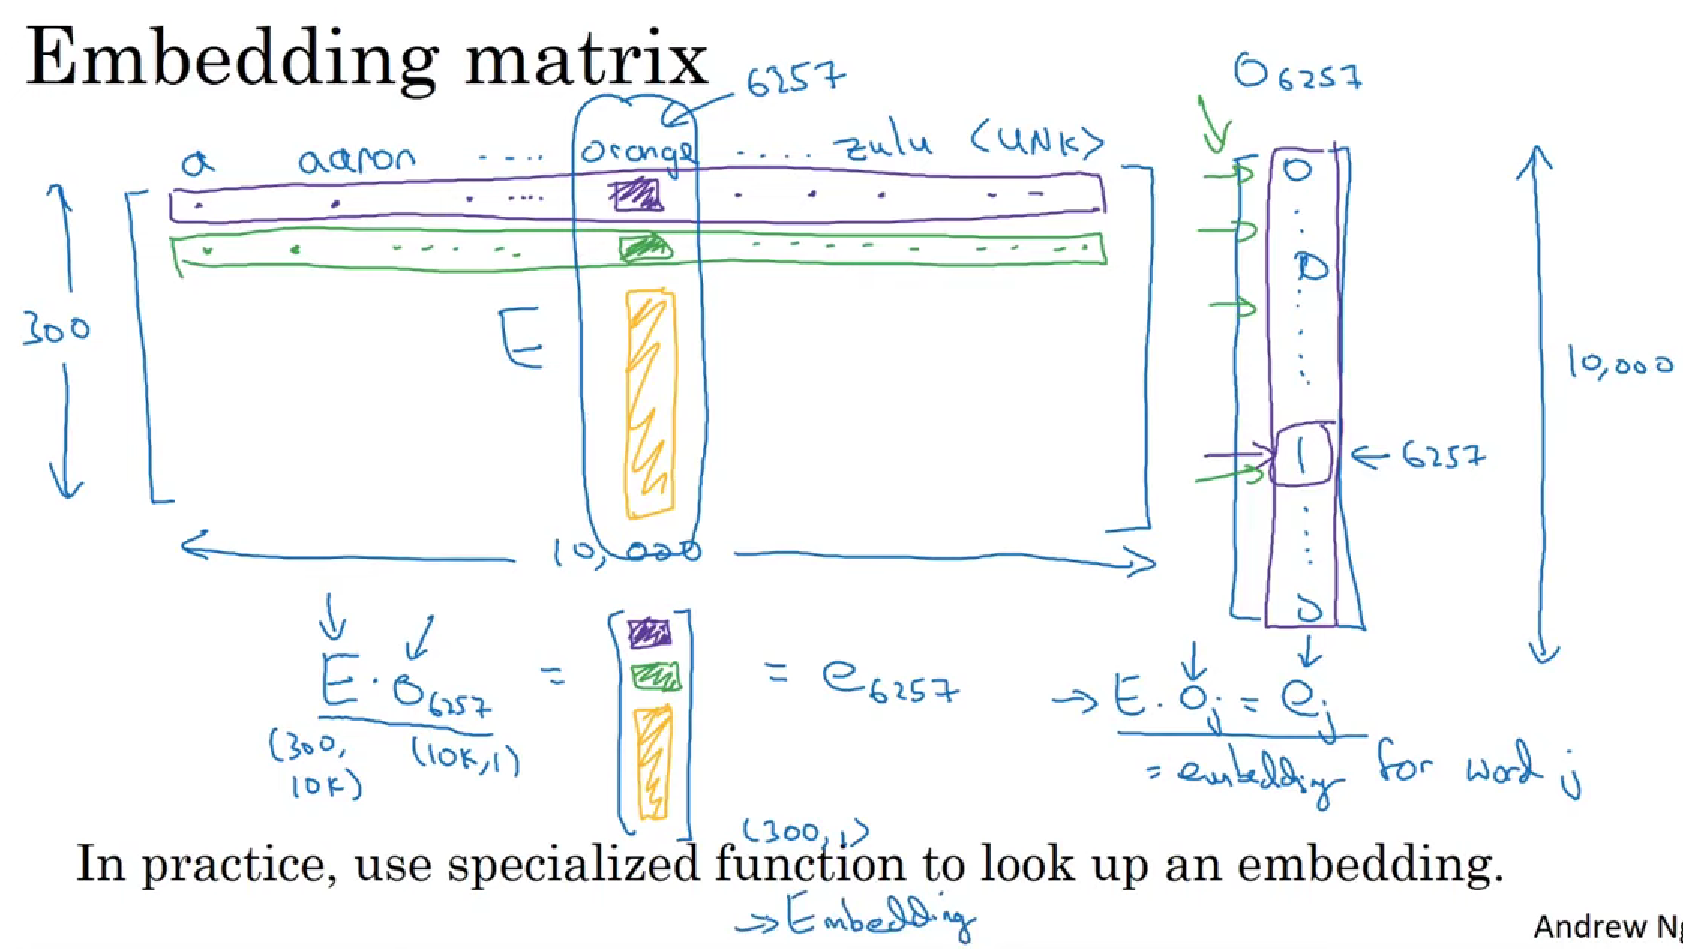 Embedding matrix
6257
O6257
a aaron .... orange .... zulu <UNK>
0
0
300
E
10,000
1 ← 6257
10,000
0
E · O6257 = [ ] = e6257
(300, 10K) (10K,1)
(300,1)
→ E · Oj = ej
= embedding for word j
In practice, use specialized function to look up an embedding.
→ Embedding
Andrew Ng